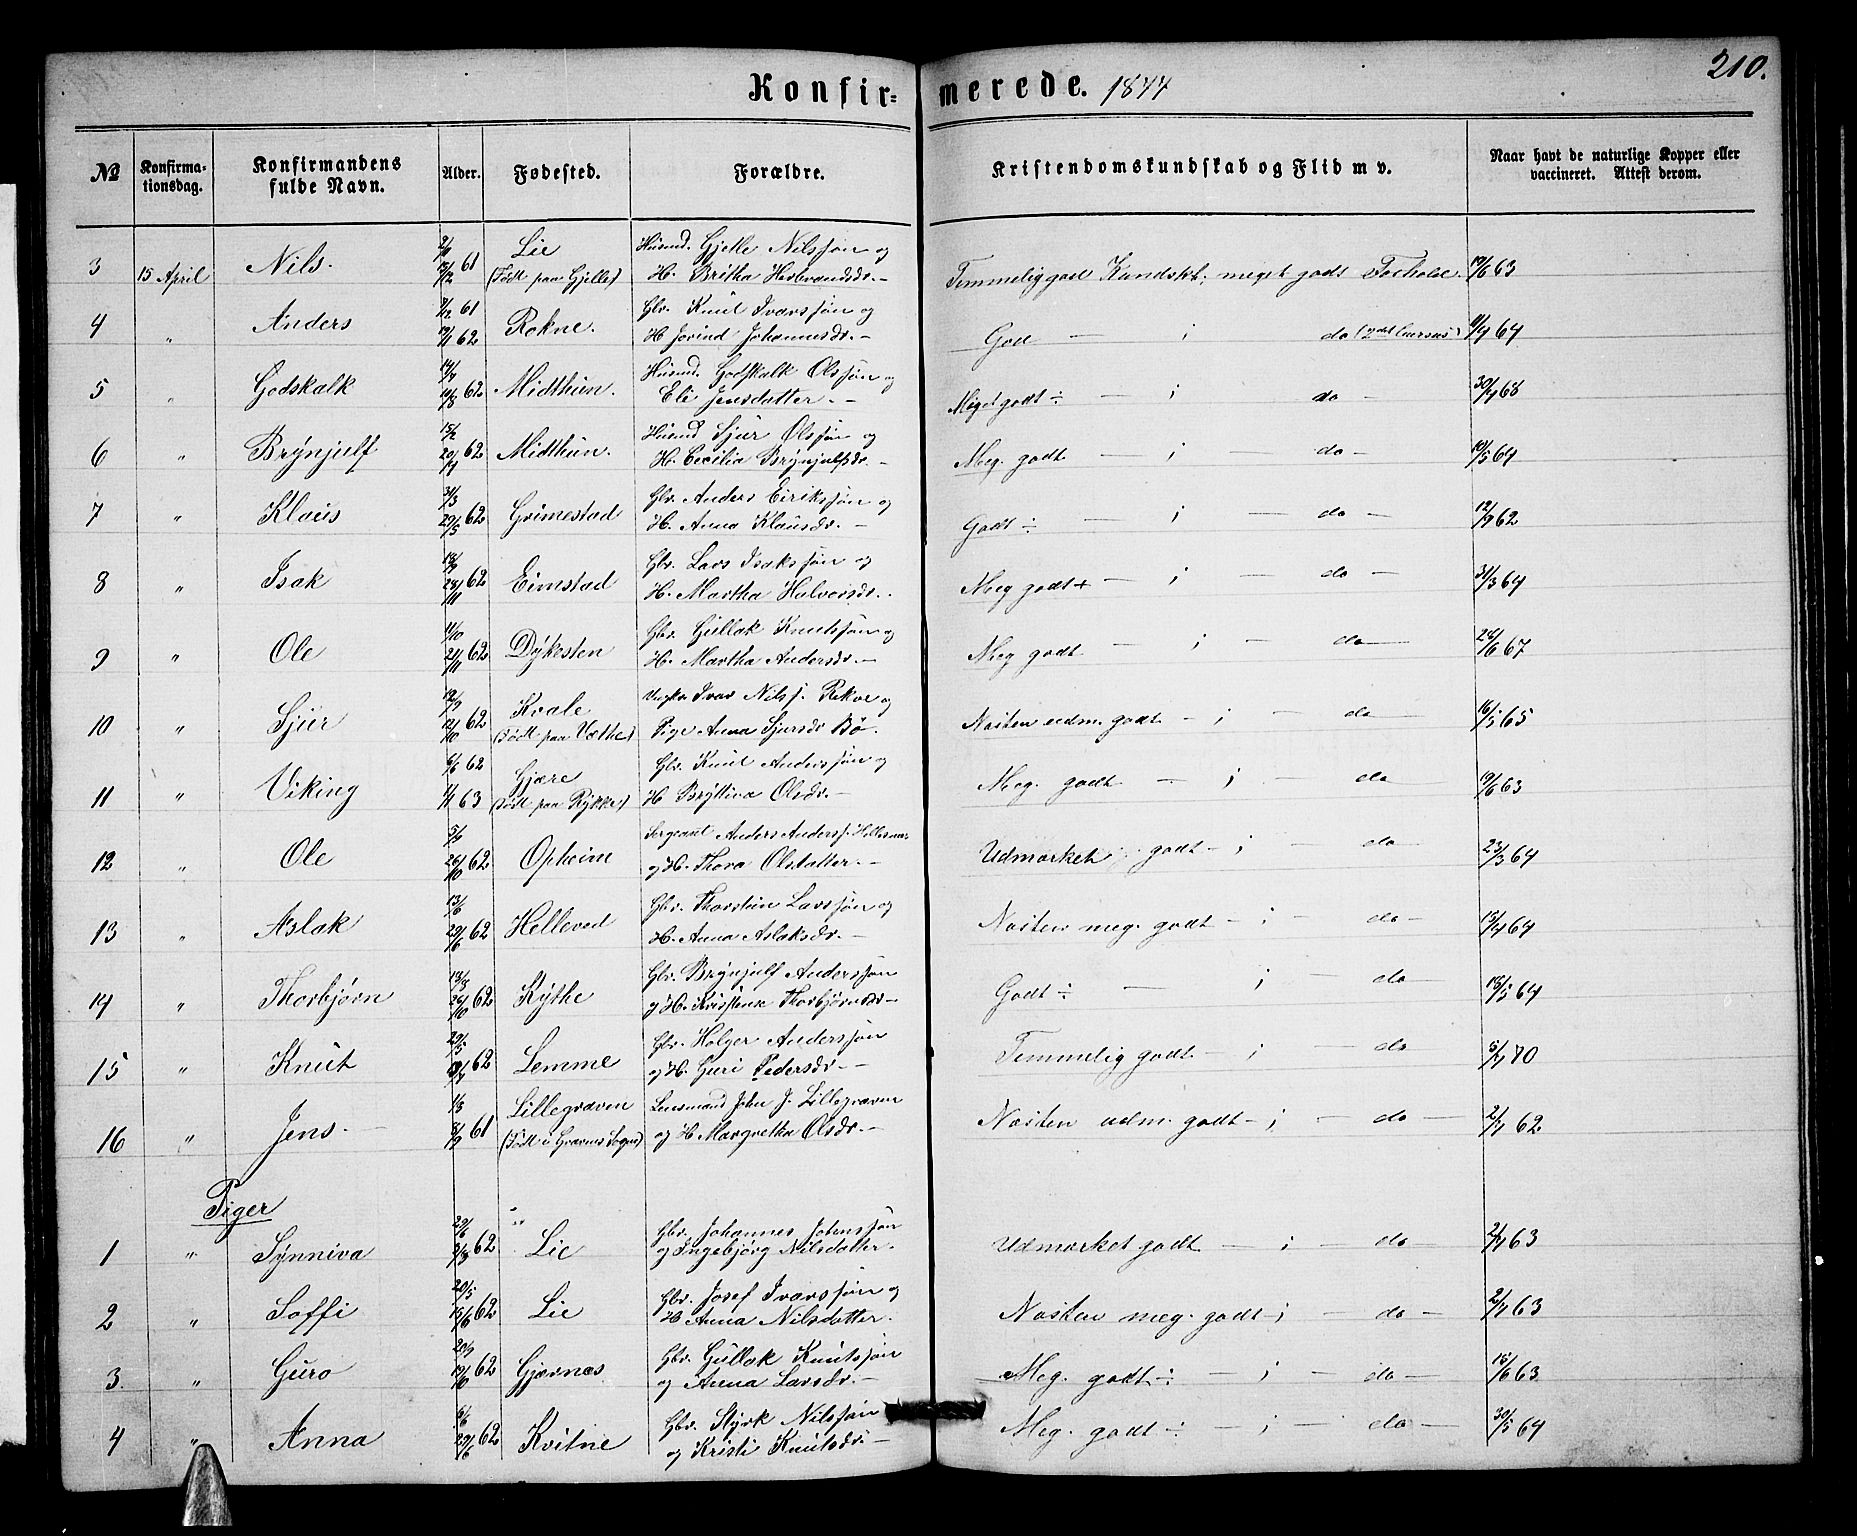 210.
Konfir= merede. 1877
№ Konfirma-tionsdag. Konfirmandens fulde Navn. Alder. Fødested. Forældre. Kristendomskundskab og Flid m v. Naar havt de naturlige Kopper eller vaccineret. Attest derom.
3 15 April Nils. 61 Lie Husmd. Gjelle Nilssøn og
(Født paa Gjelle) H. Britha Herbrandsdr.— Temmelig god Kundskb; meget godt Forhold. 17/6 63
4 " Anders 7/12 61 Rokne. Gbr. Knut Ivarssøn og
62 H Jorind Johannesdr.— God — ; do (2det Cursus) 64
5 " Godskalk 62 Midthun. Husmd. Godskalk Olssøn og
Eli Jensdatter.— Meget godt ÷ — ; do — 30/7 68
6 " Brynjulf 15/2 62 Midthun. Husmd Sjur Olssøn og
H. Cecilia Brynjulfsdr.— Meg. godt — ; — do — 10/5 64
7 " Klaus 31/3 29/5 62 Grimestad Gbr. Anders Eirikssøn og
H. Anna Klausdr.— Godt ÷ — ; — do — 12/9 62
8 " Isak 28/11 62 Eimstad Gbr. Lars Isakssøn og
H. Martha Halvorsdr.. Meg godt + — ; — do — 31/3 64
9 " Ole 11/10 21/11 62 Dykesten Gbr. Gullak Knutssøn og
H. Martha Andersdr.— Meg godt — ; — do — 28/6 67
10 " Sjur 12/10 62 Kvale Ungkr Ivar Nilss. Rekve og
(Født paa Væthe) Pige Anna Sjursdr Bø. Næsten udm. godt — ; — do — 16/5 65
11 " Viking 6/6 62 Gjære Gbr. Knut Anderssøn og
63 (Født paa Rykke) H Bryttiva Olsdr.— Meg. godt — ; — do 19/6 63
12 " Ole 5/9 26/10 62 Opheim Sergeant Anders Anderss. Hellesnæs
og H. Thora Olsdatter.— Udmærket godt — ; — do — 23/3 64
13 " Aslak 13/6 29/6 62 Helleved Gbr. Thorstein Larssøn og
H. Anna Aslaksdr.— Næsten meg. godt — ; — do — 15/4 64
14 " Thorbjørn 26/10 62 Kythe Gbr. Brynjulf Anderssøn
og H. Kristense Thorbjørnsdr— Godt ÷ — ; — do — 18/5 64
15 " Knut 29/5 62 Lemme Gbr. Holger Anderssøn
og H. Guri Pedersdr.— Temmelig godt — ; — do 5/7 70
16 " Jens.— 1/3 61 Lillegraven Lensmand John J. Lillegraven
(Født i Gravens Sogn) og H Margretha Olsdr.— Næsten udm. godt — ; — do — 2/7 62
Piger
1 " Synniva 29/6 62 Lie Gbr. Johannes Johnssøn
og Ingebjørg Nilsdatter. Udmærket godt — ; — do — 2/7 63
2 " Soffi 20/5 15/6 62 Lie Gbr. Josef Ivarssøn og
H Anna Nilsdatter. Næsten meg. godt — ; — do — 2/7 63
3. " Guro 19/10 62 Gjærnæs Gbr. Gullak Knutssøn
og Anna Larsdr.— Meg. godt ÷ — ; — do — 15/6 63
4 " Anna 6/6 29/6 62 Kvitne Gbr. Styrk Nilssøn
og Kristi Knutsdr.— Meg. godt ÷ — ; — do — 30/5 64